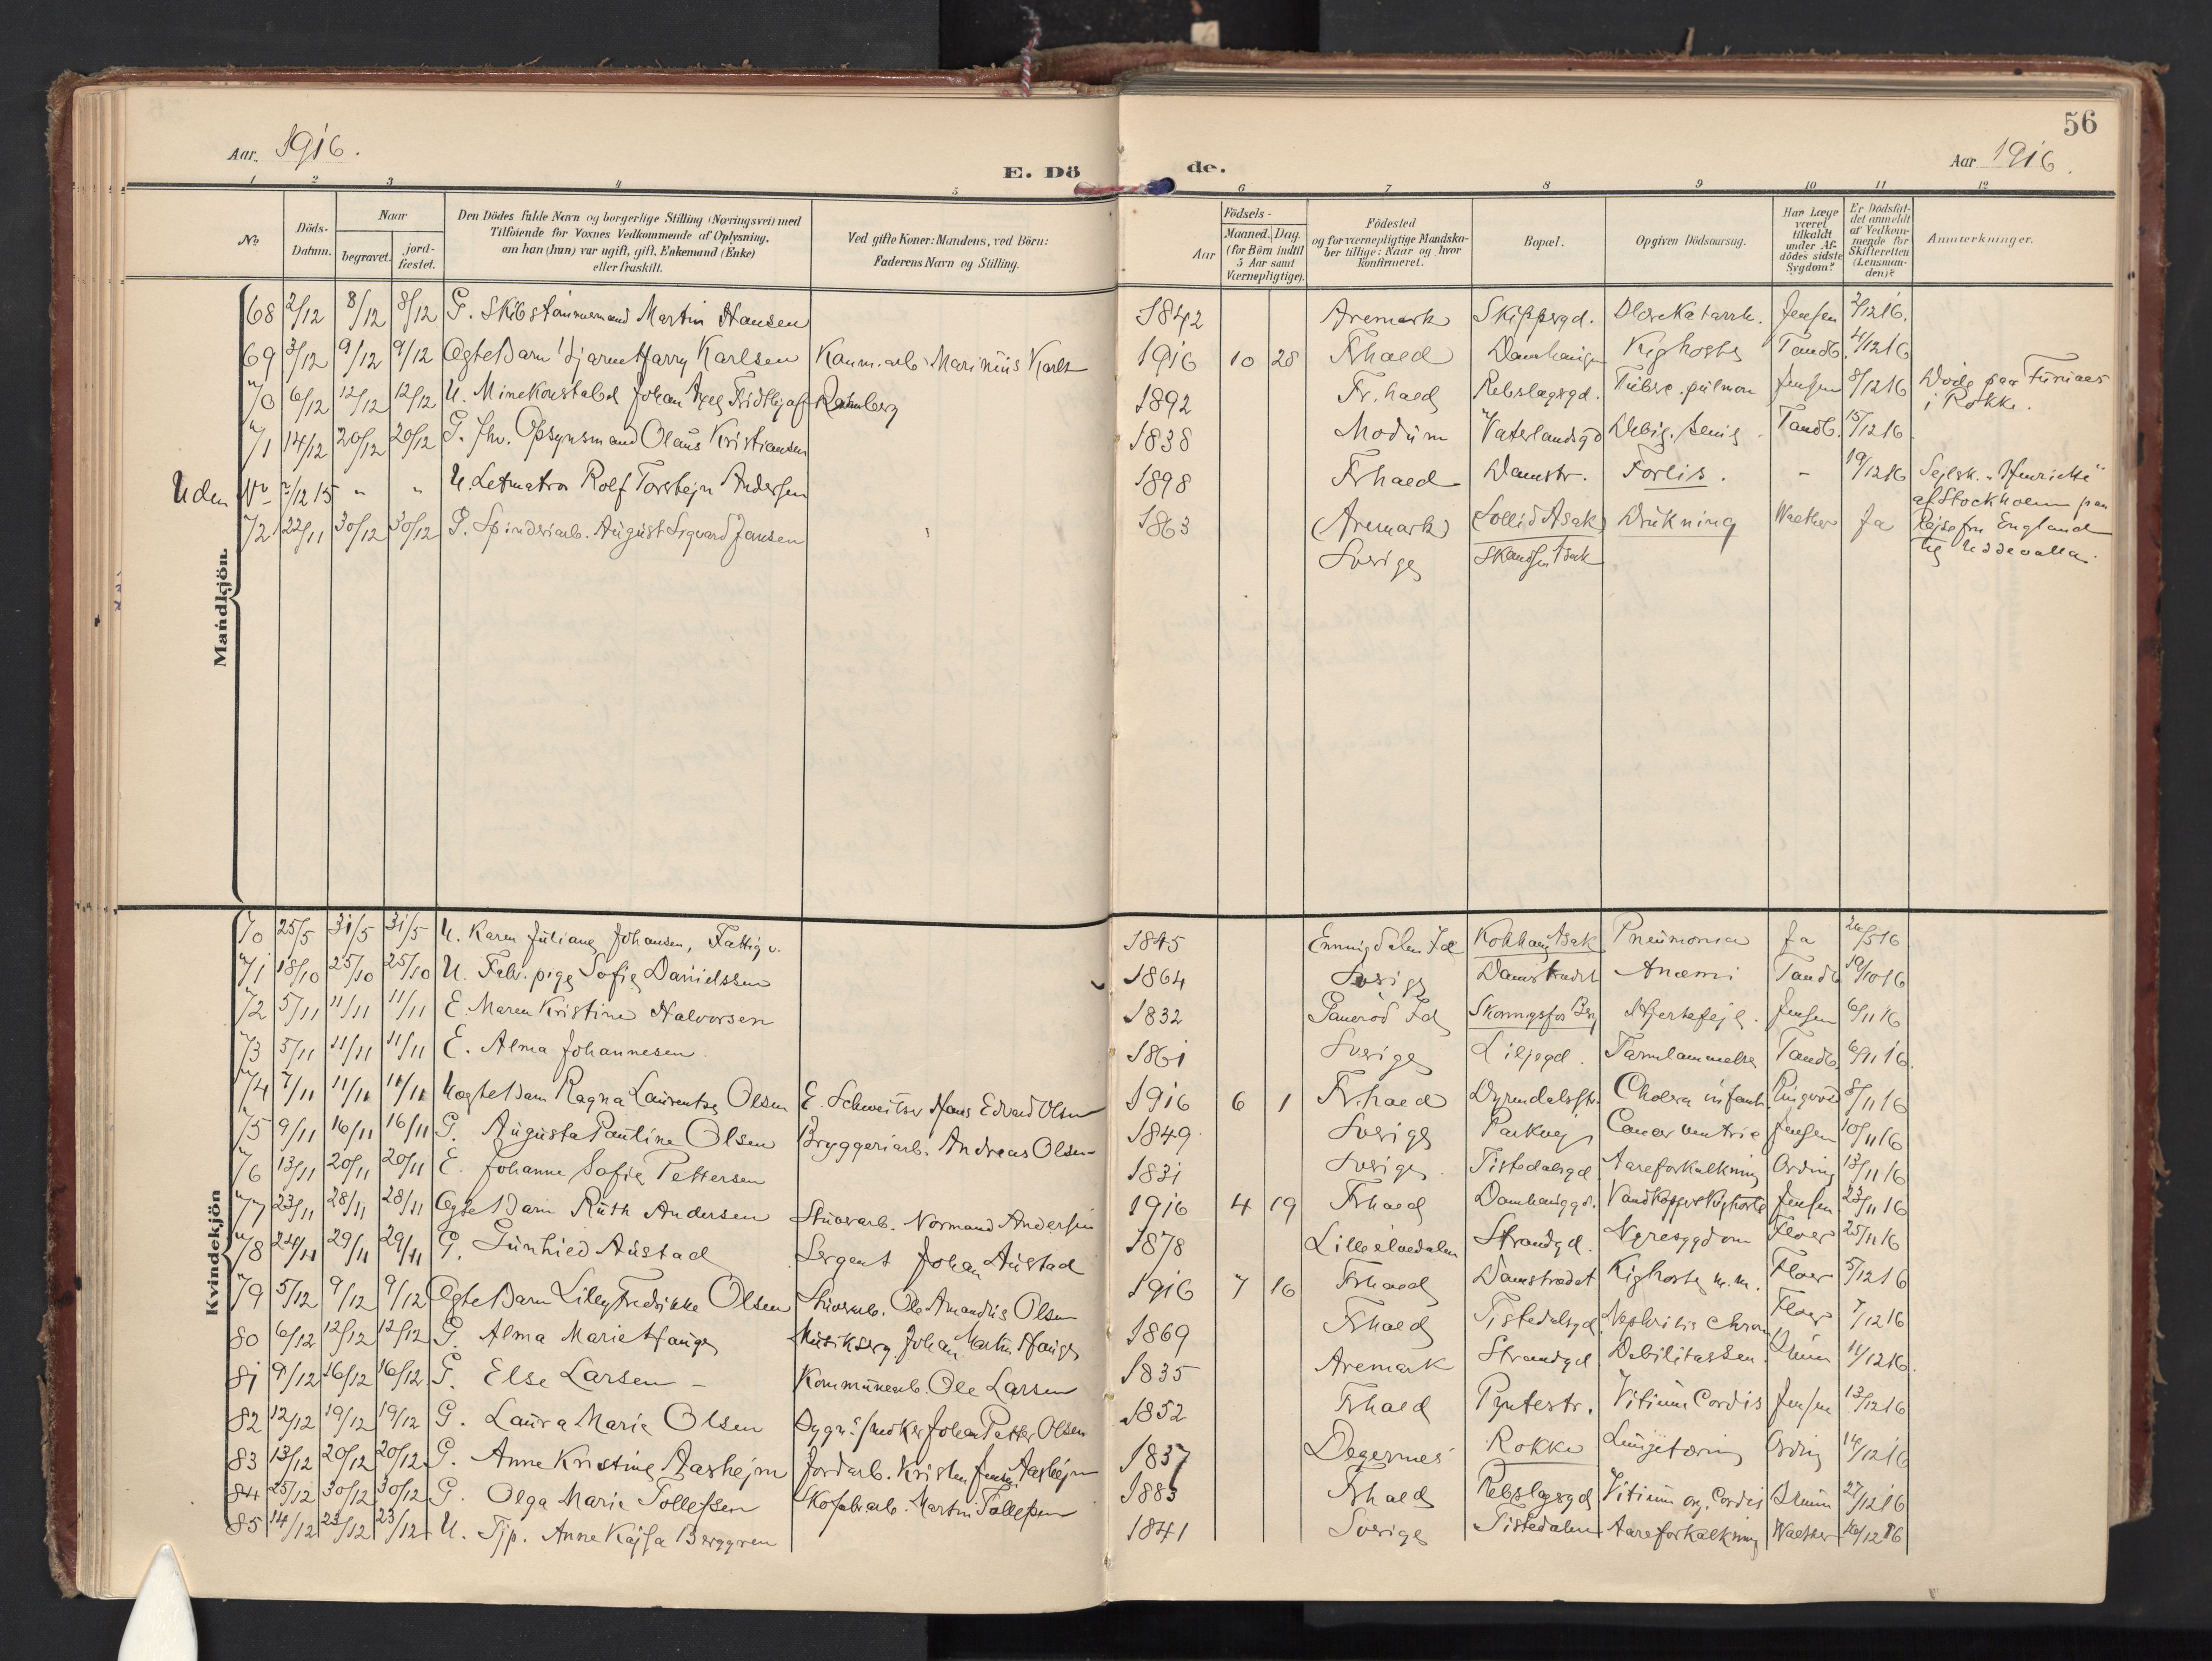 56
Aar. 1916.
E. Döde.
Aar 1916.
1 2 3 4 5 6 7 8 9 10 11 12
No.
Döds-Datum.
Naar
begravet.
jord-fæstet.
Den Dödes fulde Navn og borgerlige Stilling (Næringsvei) med
Tilföiende for Voxnes Vedkommende af Oplysning,
om han (hun) var ugift, gift, Enkemand (Enke)
eller fraskilt.
Ved gifte Koner: Mandens, ved Börn:
Faderens Navn og Stilling.
Aar
Födsels-
Maaned. Dag.
(for Börn indtil
5 Aar samt
Værnepligtige).
Födested
og for værnepligtige Mandska-
ber tillige: Naar og hvor
konfirmeret.
Bopæl.
Opgiven Dödsaarsag.
Har Læge
været
tilkaldt
under Af-
dödes sidste
Sygdom?
Er Dödsfal-
det anmeldt
af Vedkom-
mende for
Skifteretten
(Lensman-
den)?
Anmærkninger.
Mandkjön.
68 2/12 8/12 8/12 G. Skibstömmermand Martin Hansen 1842 Aremark Skippergd. Jensen 2/12 16.
69 3/12 9/12 9/12 Ægte Barn Hjarne Harry Karlsen Komm.arb. Marinius Karls 1916 10 28 Frhald Damhaugen Kighoste Tandb. 4/12 16
70 6/12 12/12 12/12 U. Minekonstabel Johan Axel Fridthjof Ramberg 1892 Fr.hald Rebslagergd. Tuberc. pulmon Jensen 8/12 16 Döde paa Furunes
i Rokke.
71 14/12 20/12 20/12 G. fhv. Opsynsmand Olaus Kristiansen 1838 Modum Vaterlandsgd Debil. senil Tandb. 15/12 16
Uden No 7/12 15 " " U. Letmatros Rolf Torstejn Andersen 1898 Frhald Damstr. Forlis. - 19/12 16 Sejlsk. "Henriette"
af Stockholm paa
Rejse fra England
til Uddevalla.
72 22/11 30/12 30/12 G. Spinderiarb. August Sigvard Jansen 1863 (Aremark) (Sollid Asak) Drukning Walther Ja
Sverige Skansen Asak
Kvindekjön
70 25/5 31/5 31/5 U. Karen Juliane Johansen, Fattig u. 1845 Enningdalen Id Kokhaug Asak Pneumonia Ja 26/5 16
71 18/10 25/10 25/10 U. Fabr.pige Sofie Danielssen 1864 Sverige Damstrædet Anæmi Tandb 19/10 16
72 5/11 11/11 11/11 E. Maren Kristine Halvorsen 1832 Id Skonningsfos Berg Hjertefejl. Jensen 6/11 16
73 5/11 11/11 11/11 E. Alma Johannesen. 1861 Sverige Liljegd. Tarmlammelse Tandb. 6/11 16.
74 7/11 11/11 11/11 Uægte Barn Ragna Laurentze Olsen E. Schweitser Hans Edvard Olsen 1916 6 1 Fr.hald Dyrendalsstr. Cholera infant. Ringvold 8/11 16
75 9/11 16/11 16/11 G. Augusta Pauline Olsen Bryggeriarb. Andreas Olsen 1849 Sverige Parkvej Cancer ventric Jensen 10/11 16
76 13/11 20/11 20/11 E. Johanne Sofie Pettersen 1831 Sverige. Tistedalsgd Aareforkalkning Ording 13/11 16
77 23/11 28/11 28/11 Ægte Barn Ruth Andersen Stuerarb. Normand Andersen 1916 4 19 Frhald Damhauggd. Vandkopper Kighoste Jensen 23/11 16
78 24/11 29/11 29/11 G. Gunhild Austad Sergent Johan Austad 1878 Lilleelvedalen Strandgd. Nyresygdom Floer 25/11 16
79 5/12 9/12 9/12 Ægte Barn Lilly Fredrikke Olsen Stuerarb. Ole Amandus Olsen 1916 7 16 Frhald Damstrædet Kighoste m.m. Floer 5/12 16
80 6/12 12/12 12/12 G. Alma Marie Hauge Musikserg. Johan Martin Hauge 1869 Frhald Tistedalsgd. Nephritis chron Floer 7/12 16
81 9/12 16/12 16/12 G. Else Larsen - Kommunearb. Ole Larsen 1835 Aremark Strandgd Debilitas sen. 11/12 16.
82 12/12 19/12 19/12 G. Laura Marie Olsen Johan Petter Olsen 1852 Frhald Pyntestr. Vitium Cordis Jensen 13/12 16
83 13/12 20/12 20/12 G. Anne Kristine Aashejm Jordarb. Kristen Jensen Aashejm 1837 Degernes Rokke Lungetæring Ording 14/12 16
84 25/12 30/12 30/12 G. Olga Marie Tollefsen Skofabrarb. Martin Tollefsen 1883 Frhald Rebslagergd Vitium org. Cordis 27/12 16
85 14/12 23/12 23/12 U. Tjp. Anne Kajsa Berggren 1841 Sverige Tistedalen Aareforkalkning Walther 16/12 16